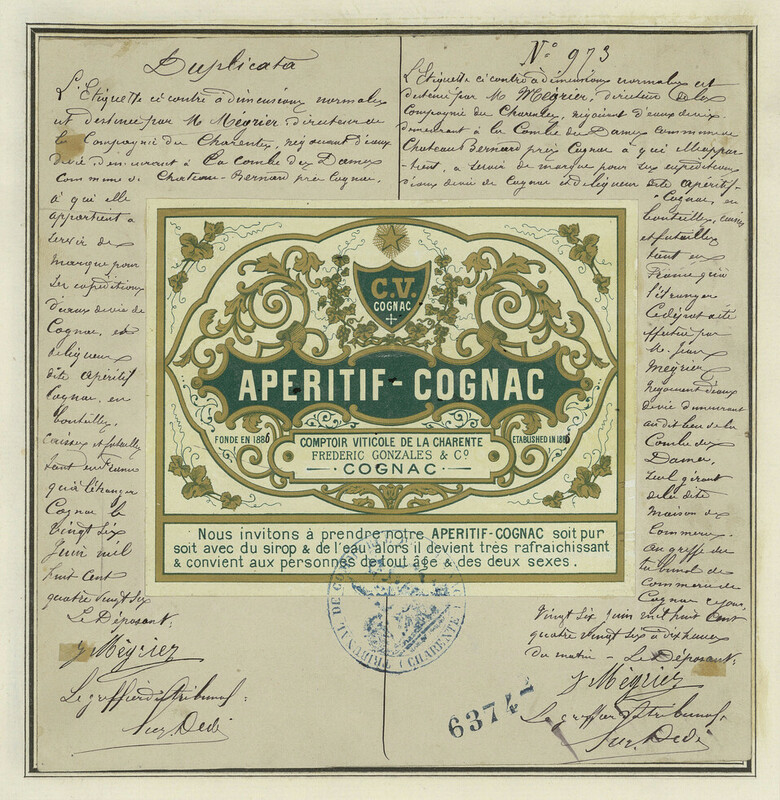 Duplicata
L'Etiquette ci contre a dimensions normales
et destinée par M. Mégrier directeur de
la Compagnie des Charentes, négociant d'eaux
de vie, demeurant à La Combe des Dames
Commune de Chateau-Bernard près Cognac,
à qui elle
appartient a
servir de
marque pour
ses expéditions
d'eaux de vie de
Cognac, et
de liqueur
dite Apéritif
Cognac, en
bouteilles,
caisses et futailles
tant en France
qu'à l'étranger
Cognac le
vingt six
Juin mil
huit cent
quatre vingt six
Le Déposant:
J Mégrier
Le greffier du tribunal:
N° 973
L'Etiquette ci contre a dimensions normales et
destinée par M. Mégrier, directeur de la
Compagnie des Charentes, négociant d'eaux de vie
demeurant à la Combe des Dames commune de
Chateau Bernard près Cognac a qui elle appar-
tient, a servir de marque pour ses expéditions
d'eaux de vie de Cognac et de liqueur dite Apéritif-
Cognac, en
bouteilles, caisses
et futailles
tant en
France qu'à
l'étranger
Ce dépôt a été
effectué par
M. Jean
Mégrier
Négociant d'eaux
de vie demeurant
au dit lieu de la
Combe des
Dames,
seul gérant
de la dite
maison de
Commerce.
au greffe du
tribunal de
commerce de
Cognac ce jour
vingt six Juin mil huit cent
quatre vingt six à dix heures
du matin. Le Déposant:
J Mégrier
Le greffier du tribunal:
C.V.
COGNAC
APERITIF-COGNAC
FONDE EN 1886
ETABLISHED IN 1886
COMPTOIR VITICOLE DE LA CHARENTE
FREDERIC GONZALES & Cº
COGNAC
Nous invitons à prendre notre APERITIF-COGNAC soit pur
soit avec du sirop & de l'eau alors il devient très rafraichissant
& convient aux personnes de tout âge & des deux sexes.
TRIBUNAL DE COMMERCE
(CHARENTE)
63747